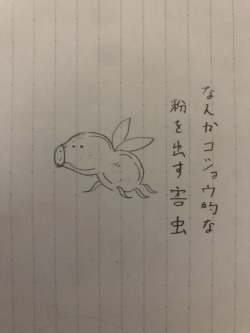 なんかコショウ的な
粉を出す害虫